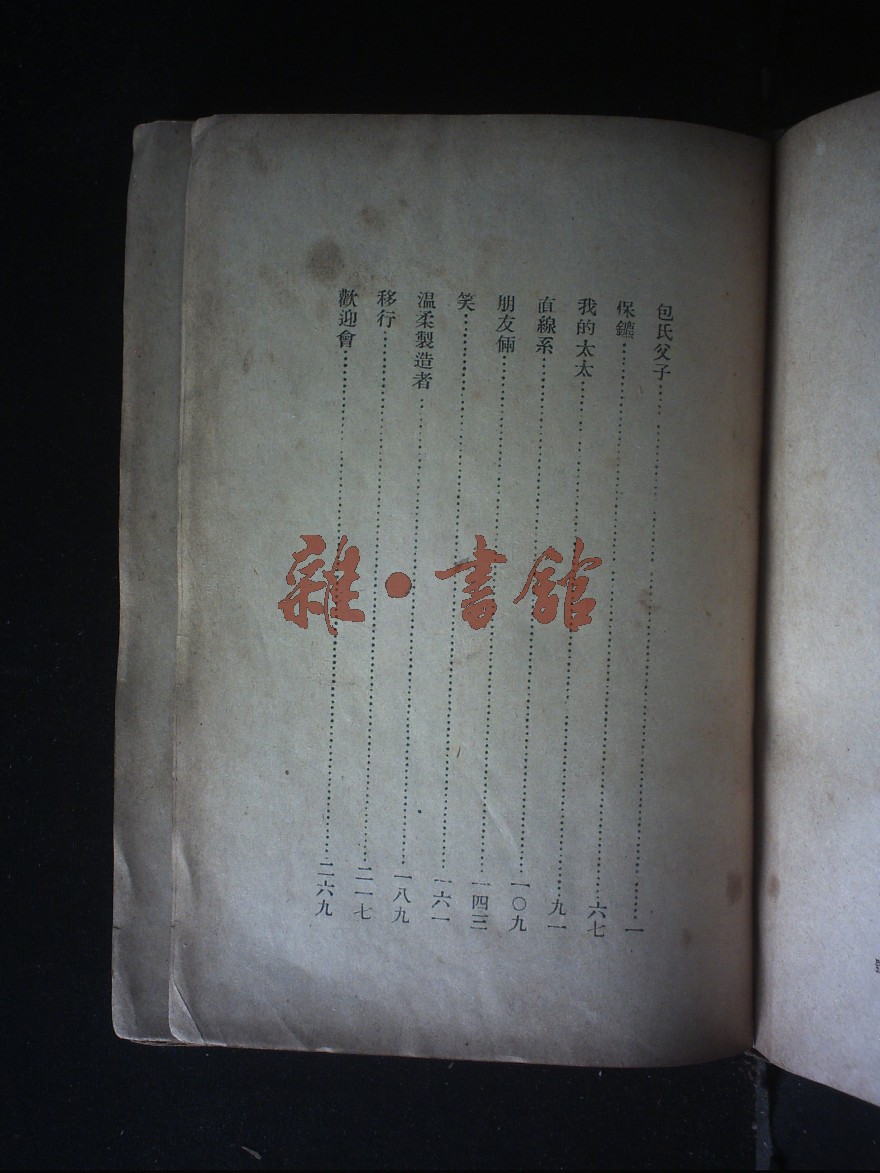 包氏父子……一
保鑣……六七
我的太太……九一
直線系……一〇九
朋友倆……一四三
笑……一六一
温柔製造者……一八九
移行……二一七
歡迎會……二六九
雜·書館